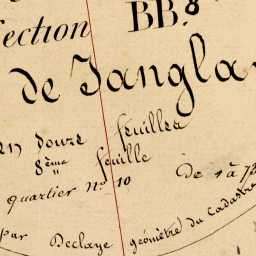 Section BB.8
de Jangla
en douze feuilles
8ème feuille
quartier no 10 De 1 à 73
par Declaye géomètre du cadastre